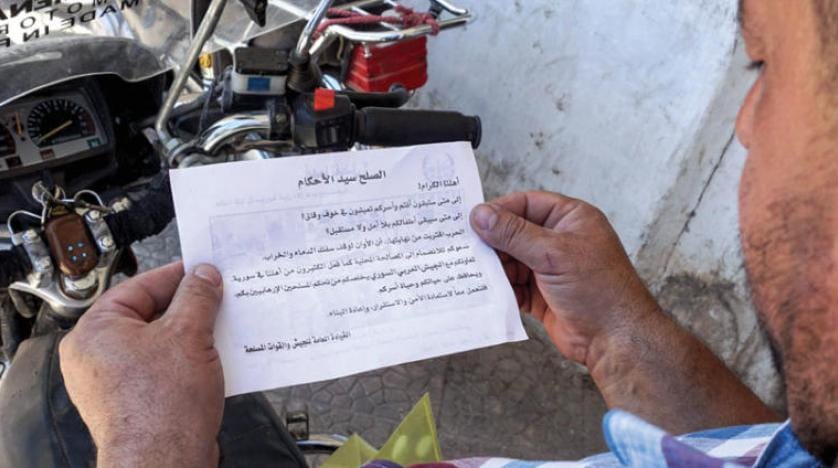 MADE IN
الصلح سيد الأحكام
أهلنا الكرام!
إلى متى ستبقون أنتم وأسركم تعيشون في خوف وقلق؟
إلى متى سيبقى أطفالكم بلا أمل ولا مستقبل؟
الحرب اقتربت من نهايتها.. آن الأوان لوقف سفك الدماء والخراب.
ندعوكم للانضمام إلى المصالحة المحلية كما فعل الكثيرون من أهلنا في سورية.
تعاونكم مع الجيش العربي السوري يخلصكم من تحكم المسلحين الإرهابيين بكم.
ويحافظ على حياتكم وحياة أسركم.
فلنعمل معاً لاستعادة الأمن والاستقرار، وإعادة البناء.
القيادة العامة للجيش والقوات المسلحة